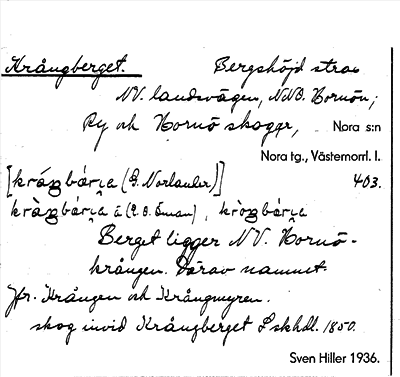 Krångberget. Bergshöjd strax
NV. landsvägen, NNB. Hornön;
Ry och Hornö skogar, Nora s:n
Nora tg., Västernorrl. l.
[kråŋbárɩa (G. Norlander)] 403.
kràŋbárɩa ā (P. O. Öman), kròŋbárɩa
Berget ligger NV. Hornö-
krången. Därav namnet.
Jfr. Krången och Krångmyren.
skog invid Krångberget Lskhdl. 1850.
Sven Hiller 1936.